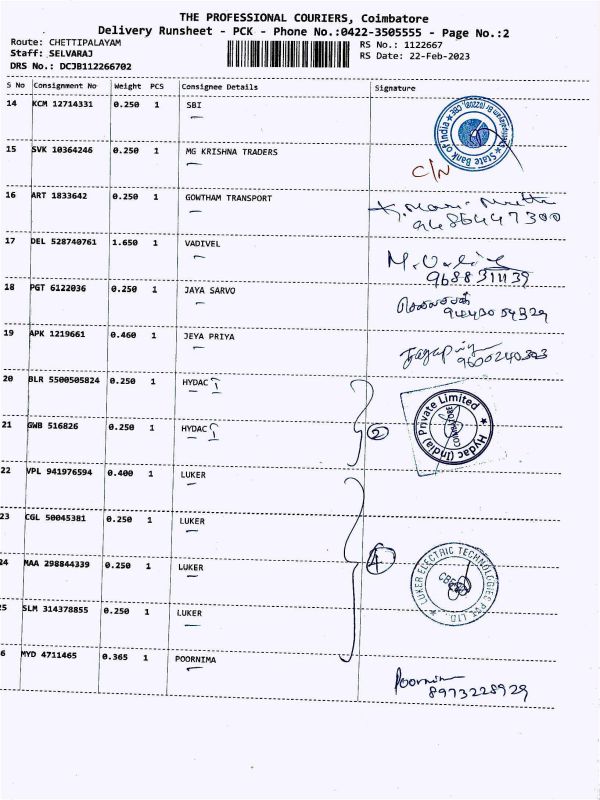 THE PROFESSIONAL COURIERS, Coimbatore
Delivery Runsheet - PCK - Phone No.:0422-3505555 - Page No.:2
Route: CHETTIPALAYAM
Staff: SELVARAJ
DRS No.: DCJB112266702
RS No.: 1122667
RS Date: 22-Feb-2023
S No Consignment No Weight PCS Consignee Details Signature
14 KCM 12714331 0.250 1 SBI
State Bank of India
15 SVK 10364246 0.250 1 MG KRISHNA TRADERS
C/N
16 ART 1833642 0.250 1 GOWTHAM TRANSPORT
9486447300
17 DEL 528740761 1.650 1 VADIVEL
9688311139
18 PGT 6122036 0.250 1 JAYA SARVO
19 APK 1219661 0.460 1 JEYA PRIYA
Jayapriya
20 BLR 5500505824 0.250 1 HYDAC I
21 GWB 516826 0.250 1 HYDAC I
2
Hydac (India) Private Limited
COIMBATORE
22 VPL 941976594 0.400 1 LUKER
23 CGL 50045381 0.250 1 LUKER
24 MAA 298844339 0.250 1 LUKER
4
LUKER ELECTRIC TECHNOLOGIES PVT. LTD.
CBE
25 SLM 314378855 0.250 1 LUKER
6 MYD 4711465 0.365 1 POORNIMA
Poornima
8973228929